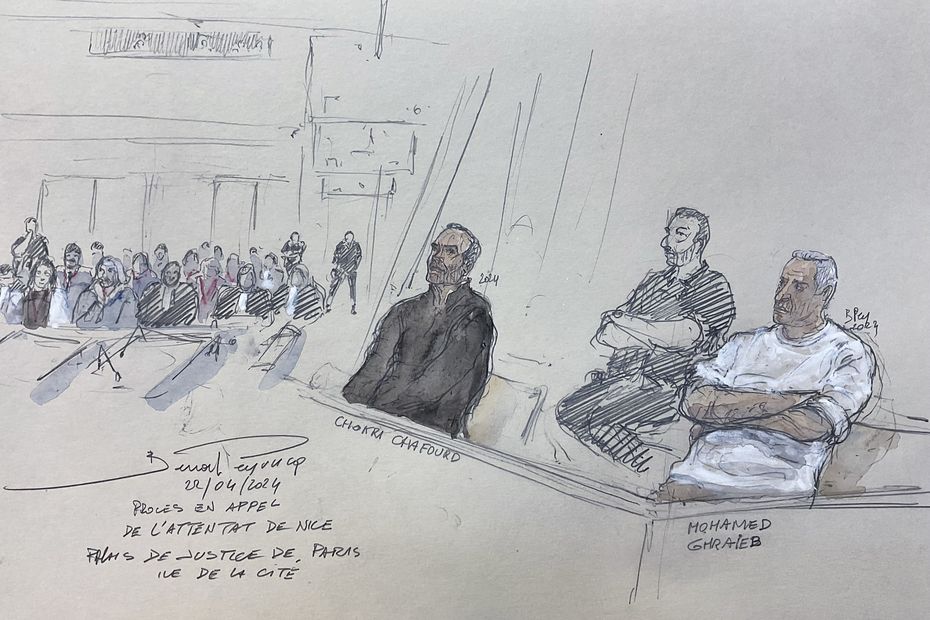 2024
B Py
2024
CHOKRI CHAFOURD
MOHAMED
GHRAIEB
Benoit Peyrucq
22/04/2024
PROCES EN APPEL
DE L'ATTENTAT DE NICE
PALAIS DE JUSTICE DE PARIS
ILE DE LA CITÉ